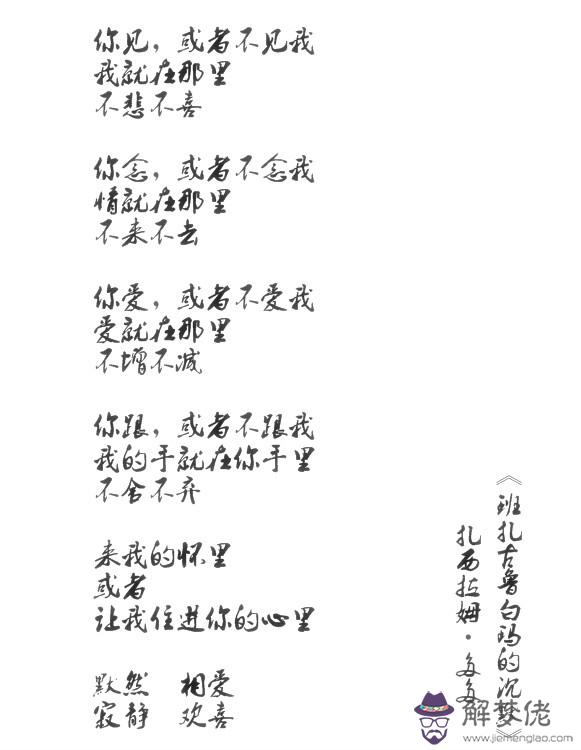 你见，或者不见我
我就在那里
不悲不喜
你念，或者不念我
情就在那里
不来不去
你爱，或者不爱我
爱就在那里
不增不减
你跟，或者不跟我
我的手就在你手里
不舍不弃
来我的怀里
或者
让我住进你的心里
默然 相爱
寂静 欢喜
《班扎古鲁白玛的沉默》
扎西拉姆·多多
解梦佬
www.jiemenglao.com